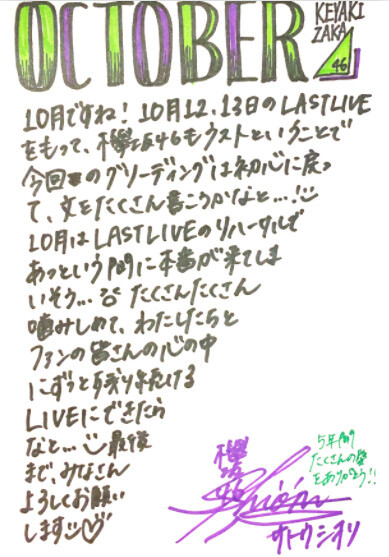 OCTOBER
KEYAKI
ZAKA
46
10月ですね! 10月12,13日のLASTLIVE
をもって、欅坂46もラストということで
今回のグリーティングは初心に戻っ
て、文をたくさん書こうかなと…!
10月はLASTLIVEのリハーサルで
あっという間に本番が来てしま
いそう… たくさんたくさん
噛みしめて、わたしたちと
ファンの皆さんの心の中
にずっと残り続ける
LIVEにできたら
なと… 最後
まで、みなさん
よろしくお願い
します
5年間
たくさんの愛
をありがとう!!
欅坂
46
Shiori
サトウシオリ